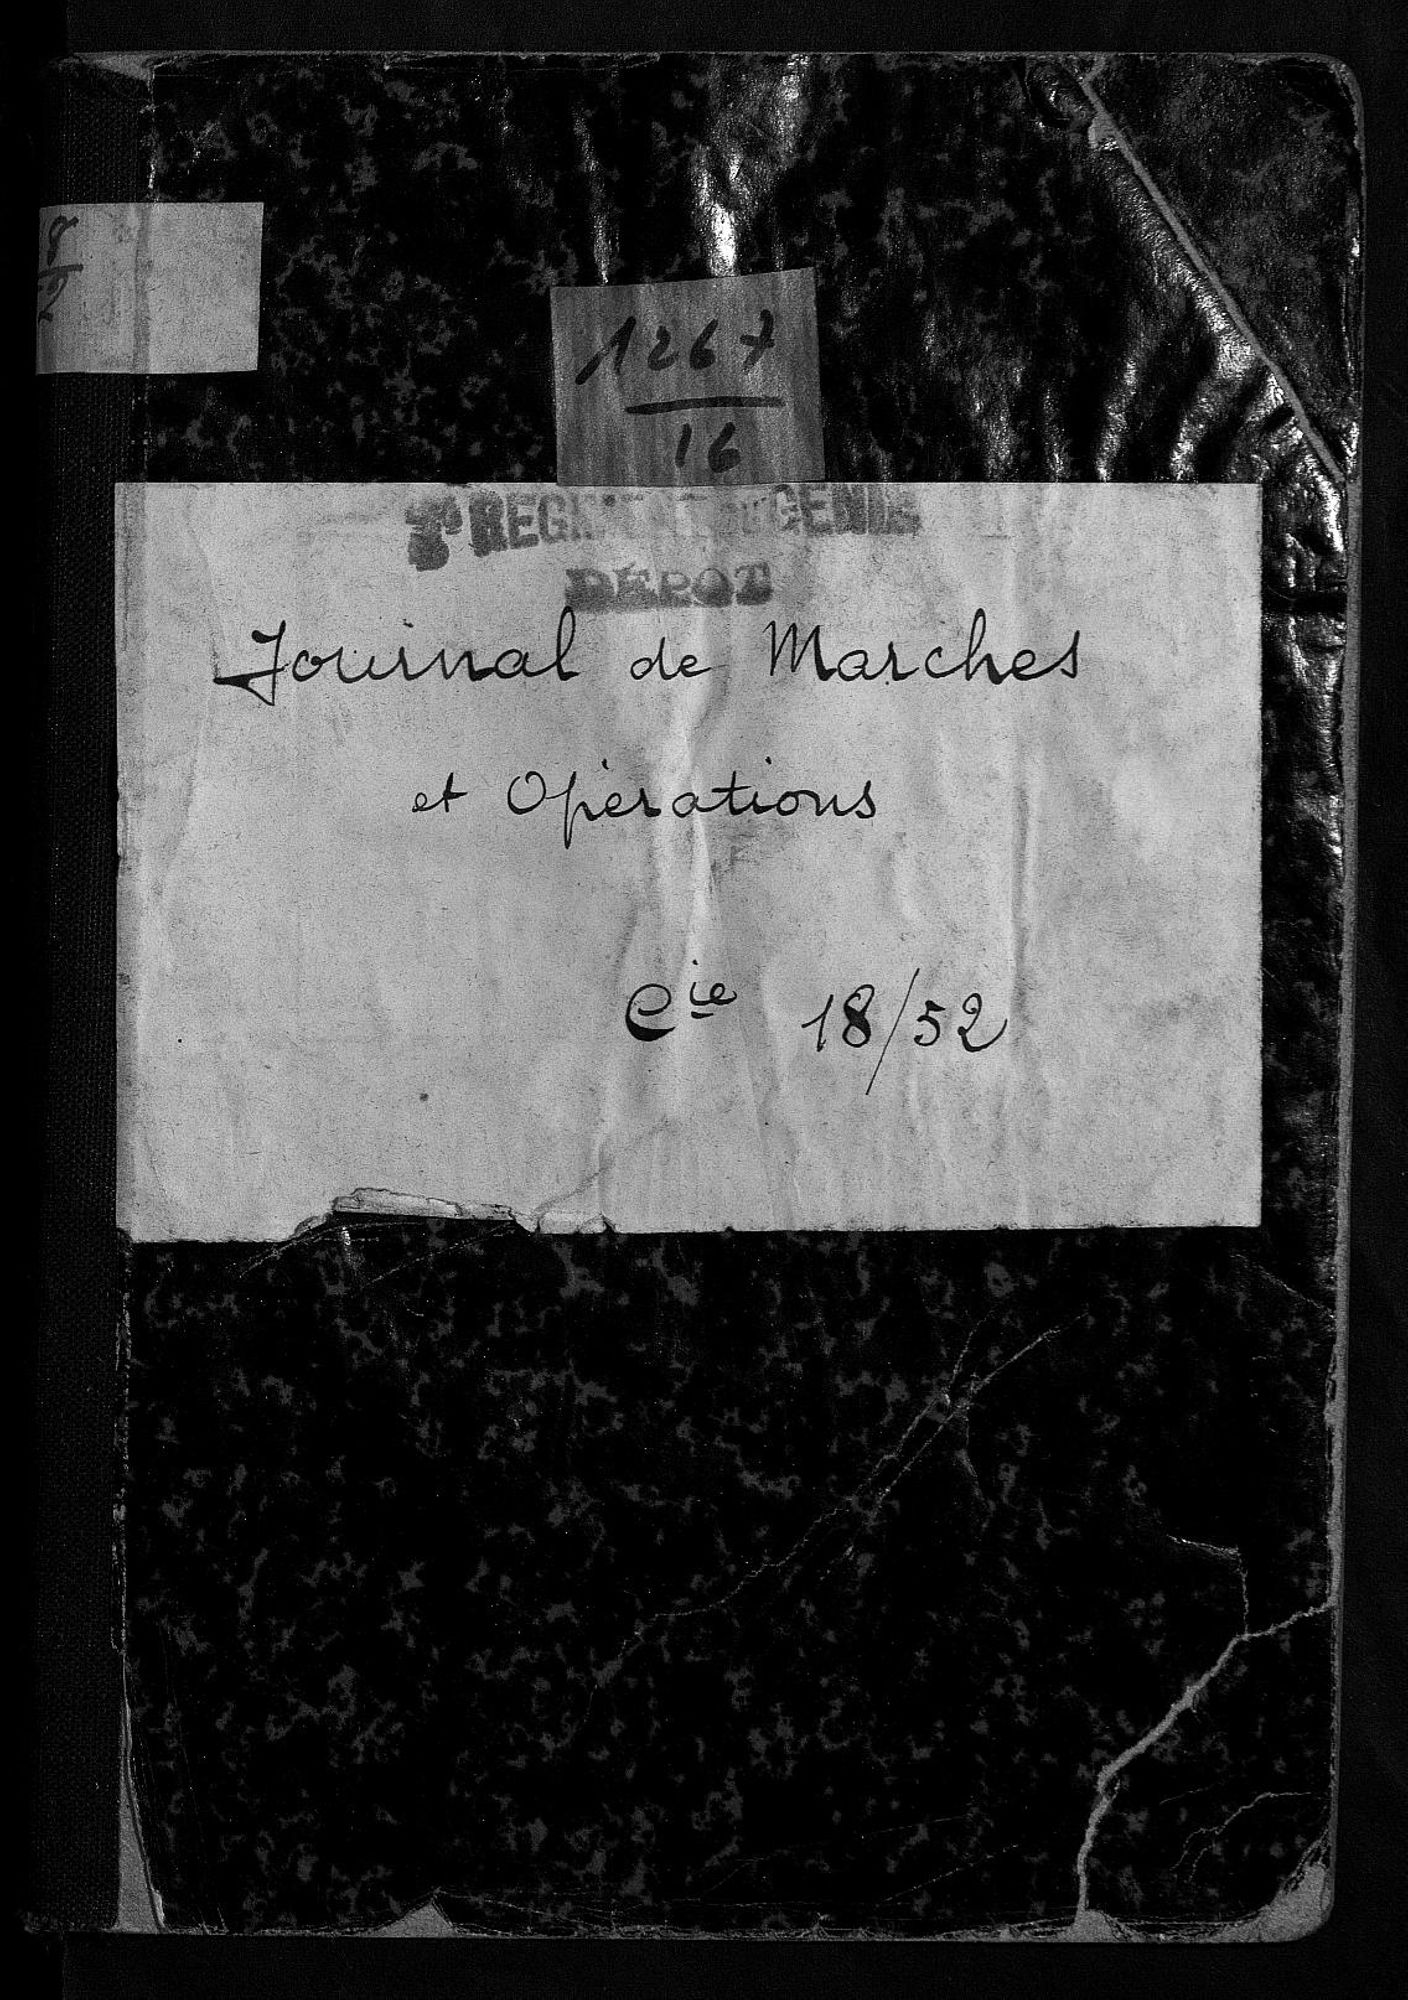 1267
16
REGIMENT DU GENIE
DÉPOT
Journal de Marches
et Opérations
Cie 18/52